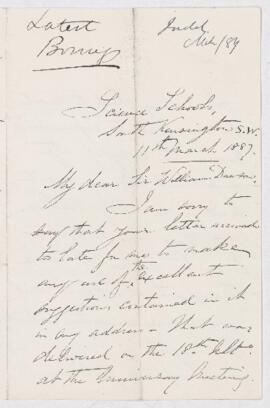 Latest
Judd
Mch/87
Science Schools,
South Kensington S.W.
11th March 1887.
My dear Sir William Dawson,
I am sorry to
say that your letter arrived
to late for me to make
any use of the excellent
suggestions contained in it
in my address - that was
delivered on the 18th ult:
at the Anniversary Meeting.